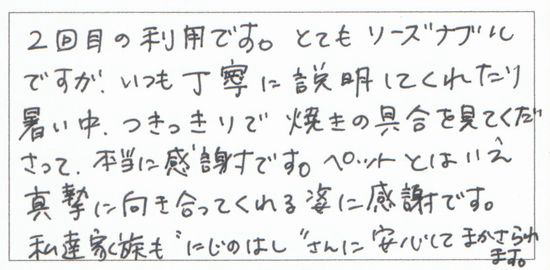 2回目の利用です。とてもリーズナブル
ですが、いつも丁寧に説明してくれたり
暑い中、つきっきりで焼きの具合を見てくだ
さって、本当に感謝です。ペットとはいえ
真摯に向き合ってくれる姿に感謝です。
私達家族も"にじのはし"さんに安心してまかさられ
ます。